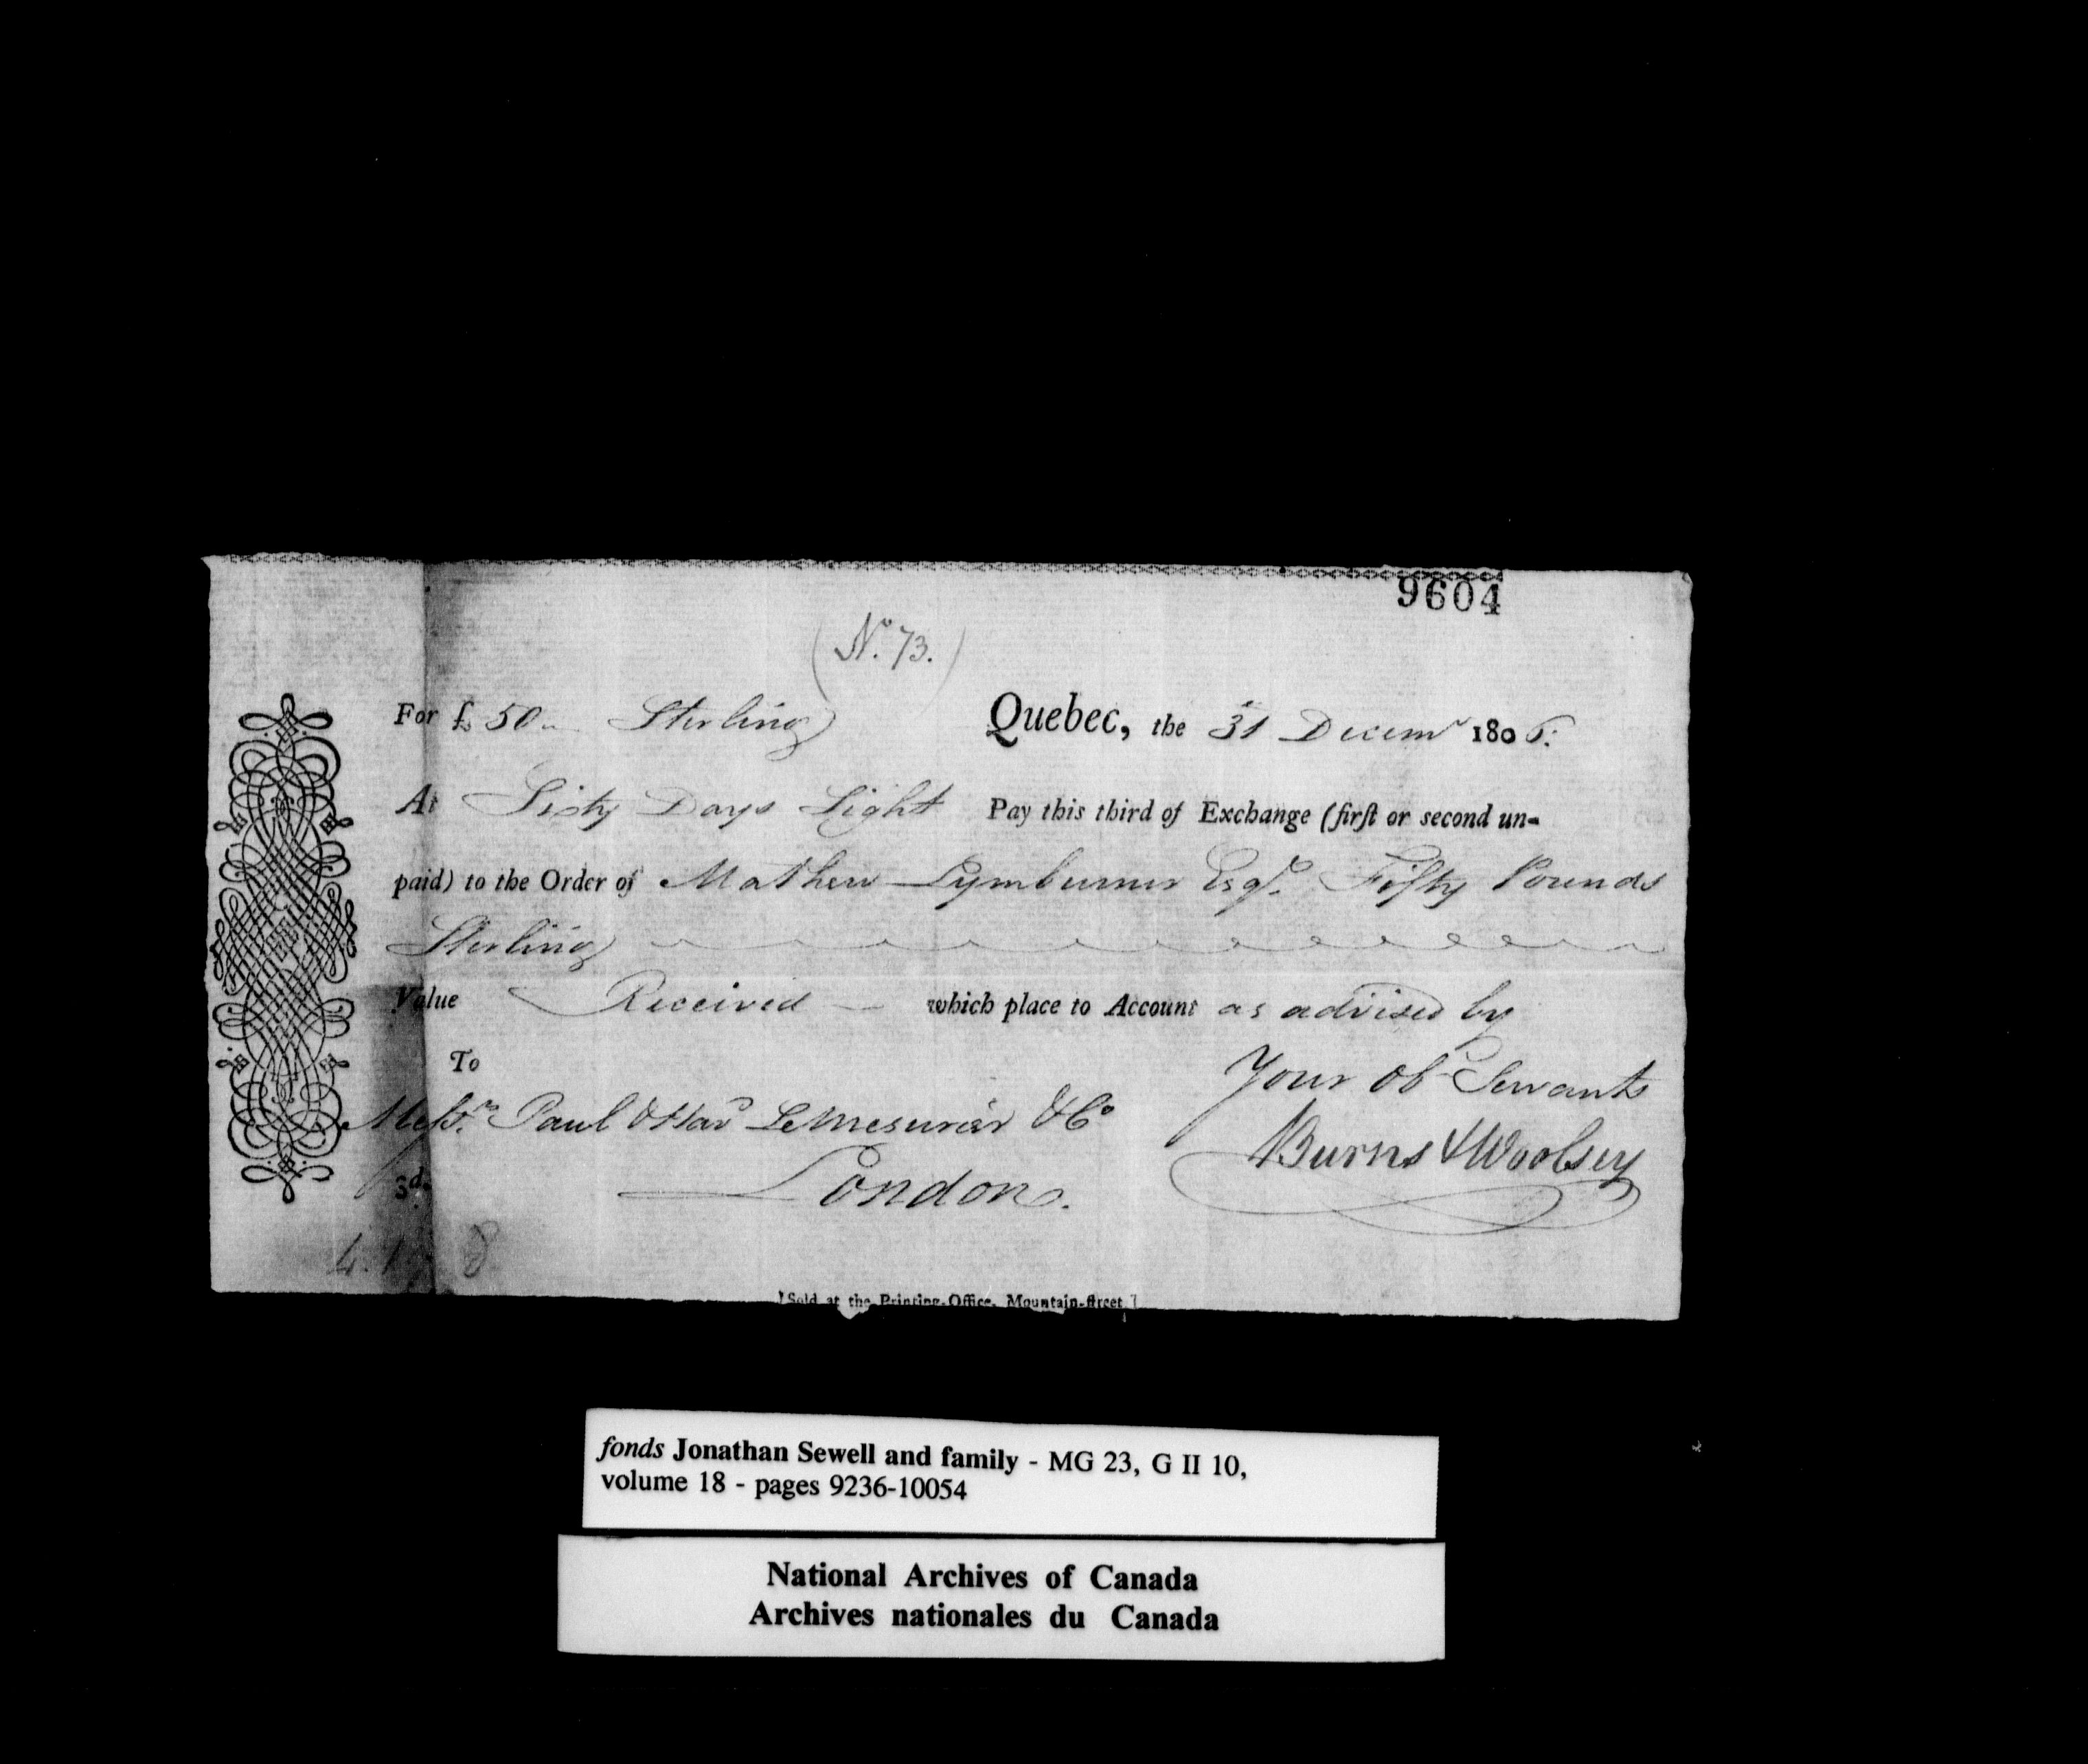 9604
(No. 73.)
For £ 50 Sterling Quebec, the 31st Decemr 1806.
At Sixty Days Sight Pay this third of Exchange (firſt or second un-
paid) to the Order of Mathew Lymburner Esqr. Fifty Pounds
Sterling
Value Received — which place to Account as advised by
To
Your Obt Servants
Messrs. Paul & Havd LeMesurier & Co
Burns & Woolsey
London.
3d.
[Sold at the Printing-Office, Mountain-ſtreet.]
fonds Jonathan Sewell and family - MG 23, G II 10,
volume 18 - pages 9236-10054
National Archives of Canada
Archives nationales du Canada